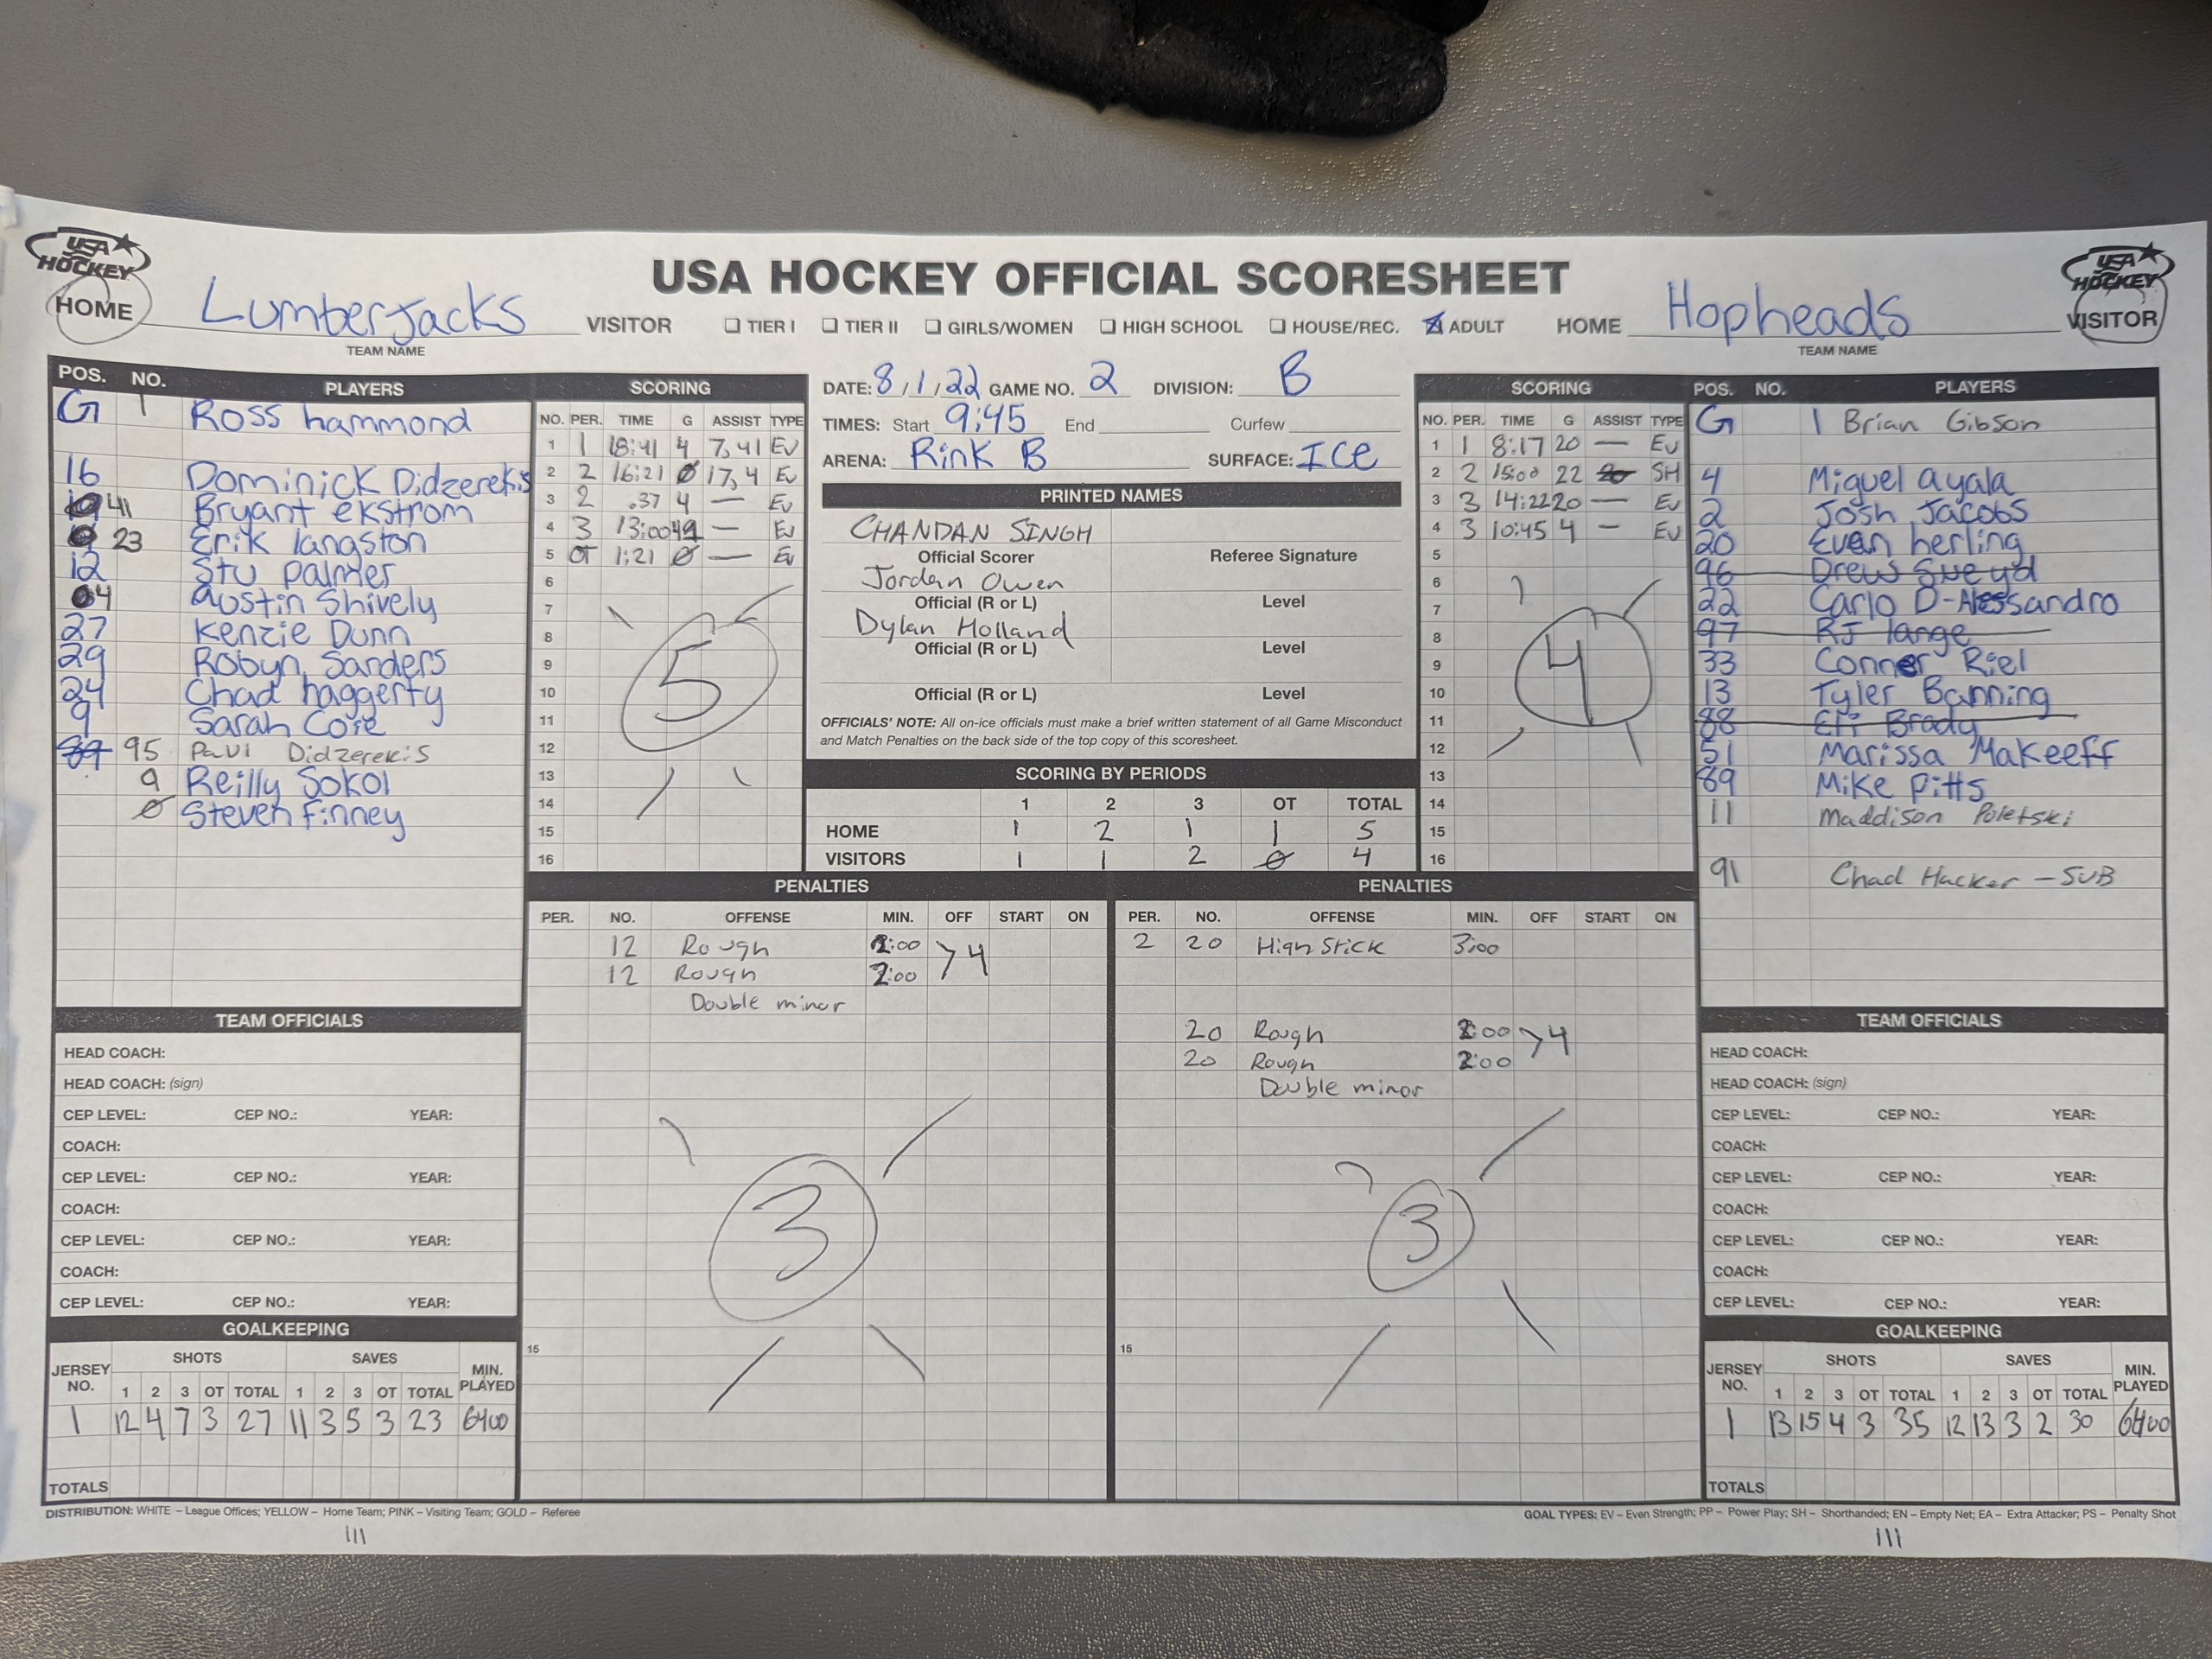 USA HOCKEY
USA HOCKEY
USA HOCKEY OFFICIAL SCORESHEET
HOME Lumberjacks VISITOR
TEAM NAME
TIER I TIER II GIRLS/WOMEN HIGH SCHOOL HOUSE/REC. ADULT
HOME Hopheads VISITOR
TEAM NAME
POS. NO. PLAYERS
G 1 Ross hammond
16 Dominick Didzerekis
41 Bryant ekstrom
23 Erik langston
12 Stu palmer
4 Austin Shively
27 Kenzie Dunn
29 Robyn Sanders
24 Chad haggerty
9 Sarah Core
89 95 Paul Didzerekis
9 Reilly Sokol
Ø Steven Finney
SCORING
NO. PER. TIME G ASSIST TYPE
1 1 18:41 4 7,41 EV
2 2 16:21 Ø 17,4 EV
3 2 .37 4 — EV
4 3 13:00 — EV
5 OT 1:21 Ø — EV
6
7
8
9
10
11
12
13
14
15
16
5
DATE: 8/1/22 GAME NO. 2 DIVISION: B
TIMES: Start 9:45 End Curfew
ARENA: Rink B SURFACE: ICe
PRINTED NAMES
CHANDAN SINGH
Official Scorer Referee Signature
Jordan Owen
Official (R or L) Level
Dylan Holland
Official (R or L) Level
Official (R or L) Level
OFFICIALS' NOTE: All on-ice officials must make a brief written statement of all Game Misconduct
and Match Penalties on the back side of the top copy of this scoresheet.
SCORING BY PERIODS
1 2 3 OT TOTAL
HOME 1 2 1 1 5
VISITORS 1 1 2 Ø 4
SCORING
NO. PER. TIME G ASSIST TYPE
1 1 8:17 20 — EV
2 2 15:00 22 20 SH
3 3 14:22 20 — EV
4 3 10:45 4 — EV
5
6
7
8
9
10
11
12
13
14
15
16
4
POS. NO. PLAYERS
G 1 Brian Gibson
4 Miguel ayala
2 Josh Jacobs
20 Evan herling
96 Drew
22 Carlo D-Alessandro
97 RJ lange
33 Conner Riel
13 Tyler Banning
88 Eli Brady
51 Marissa Makeeff
89 Mike Pitts
11 Maddison Poletski
91 Chad Hacker - SUB
PENALTIES
PER. NO. OFFENSE MIN. OFF START ON
12 Rough 2:00 >4
12 Rough 2:00
Double minor
3
15
PENALTIES
PER. NO. OFFENSE MIN. OFF START ON
2 20 High Stick 3:00
20 Rough 2:00 >4
20 Rough 2:00
Double minor
3
15
TEAM OFFICIALS
HEAD COACH:
HEAD COACH: (sign)
CEP LEVEL: CEP NO.: YEAR:
COACH:
CEP LEVEL: CEP NO.: YEAR:
COACH:
CEP LEVEL: CEP NO.: YEAR:
COACH:
CEP LEVEL: CEP NO.: YEAR:
GOALKEEPING
SHOTS SAVES
JERSEY NO. 1 2 3 OT TOTAL 1 2 3 OT TOTAL MIN. PLAYED
1 12 4 7 3 27 11 3 5 3 23 6400
TOTALS
TEAM OFFICIALS
HEAD COACH:
HEAD COACH: (sign)
CEP LEVEL: CEP NO.: YEAR:
COACH:
CEP LEVEL: CEP NO.: YEAR:
COACH:
CEP LEVEL: CEP NO.: YEAR:
COACH:
CEP LEVEL: CEP NO.: YEAR:
GOALKEEPING
SHOTS SAVES
JERSEY NO. 1 2 3 OT TOTAL 1 2 3 OT TOTAL MIN. PLAYED
1 13 15 4 3 35 12 13 3 2 30 6400
TOTALS
DISTRIBUTION: WHITE – League Offices; YELLOW – Home Team; PINK – Visiting Team; GOLD – Referee
GOAL TYPES: EV – Even Strength; PP – Power Play; SH – Shorthanded; EN – Empty Net; EA – Extra Attacker; PS – Penalty Shot
III
III